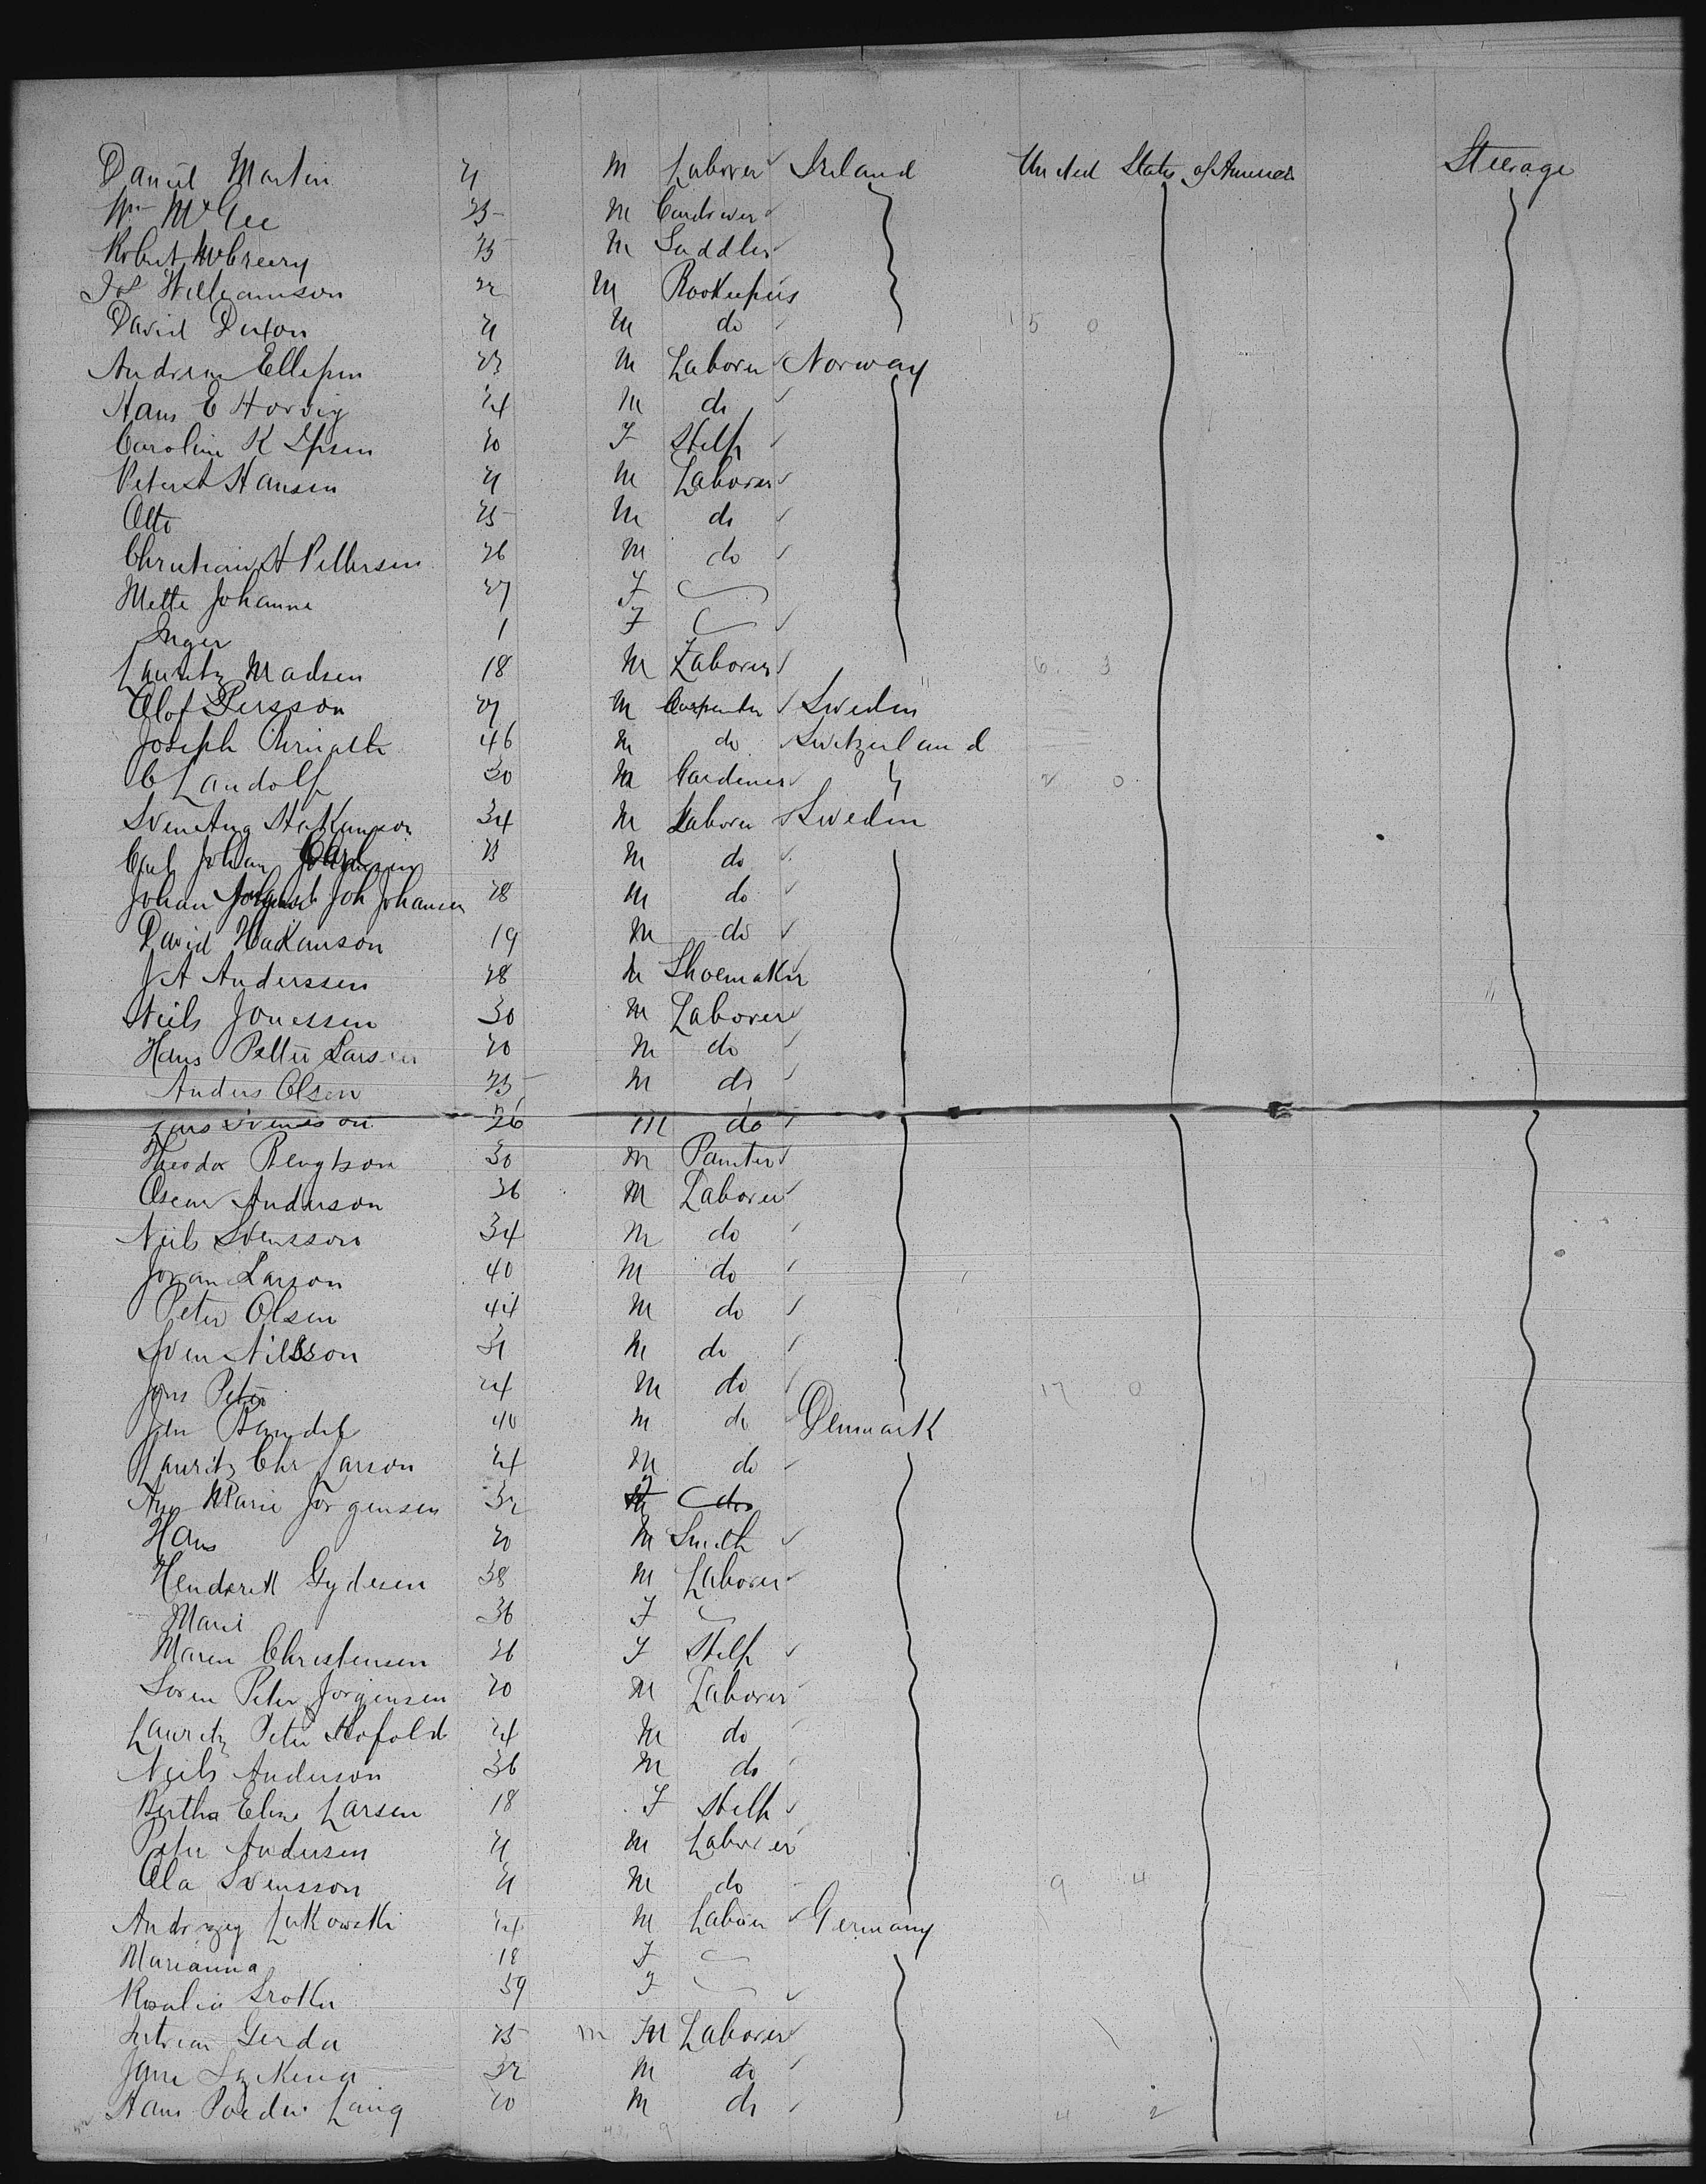 Daniel Martin 21 M Laborer Ireland United States of America Steerage
Wm McGee 25 M
Robert McCreery 25 M Saddler
Jos Williamson 22 M Bookeeper
David Dixon 21 M do 5 0
Andrew 23 M Laborer Norway
Hans E Horvig 24 M do
Caroline K 20 F SHelp
Peter A Hansen 21 M Laborer
Otto 25 M do
Christian H Pettersen 26 M do
Mette Johanne 27 F
Inger 1 F
Lauritz Madsen 18 M Laborer 6 3
Olof Persson 27 M Carpenter Sweden
Joseph 46 M do Switzerland
C Landolf 30 M Gardener " 2 0
Sven Aug Hakanson 34 M Laborer Sweden
Carl Johan 23 M do
Johan Joh Johansen 28 M do
David Hakanson 19 M do
J A Anderssen 28 M Shoemaker
Niels Jonessen 30 M Laborer
Hans Petter Larsen 20 M do
Anders Olsen 25 M do
Lars Svensson 26 M do
Theodor Bengtson 30 M Painter
Oscar Anderson 36 M Laborer
Niels Svensson 34 M do
Johan Larson 40 M do
Peter Olsen 44 M do
Sven Nilsson 31 M do
Jons Peter 24 M do 17 0
Jen 40 M do Denmark
Lauritz Chr Larson 24 M do
Ane Marie Jorgensen 32 F do
Hans 20 M Smith
Hendrik Gydesen 38 M Laborer
Marie 36 F
Maren Christensen 26 F SHelp
Soren Peter Jorgensen 20 M Laborer
Lauritz Peter 24 M do
Niels Anderson 36 M do
Bertha Eline Larsen 18 F SHelp
Peter Andersen 21 M Laborer
Ola Svensson 21 M do 9 4
Andrzey Lukowski 24 M Labour Germany
Marianna 18 F
Rosalia 59 F
Gerda 25 M Laborer
32 M do
Hans Lang 20 M do 4 2